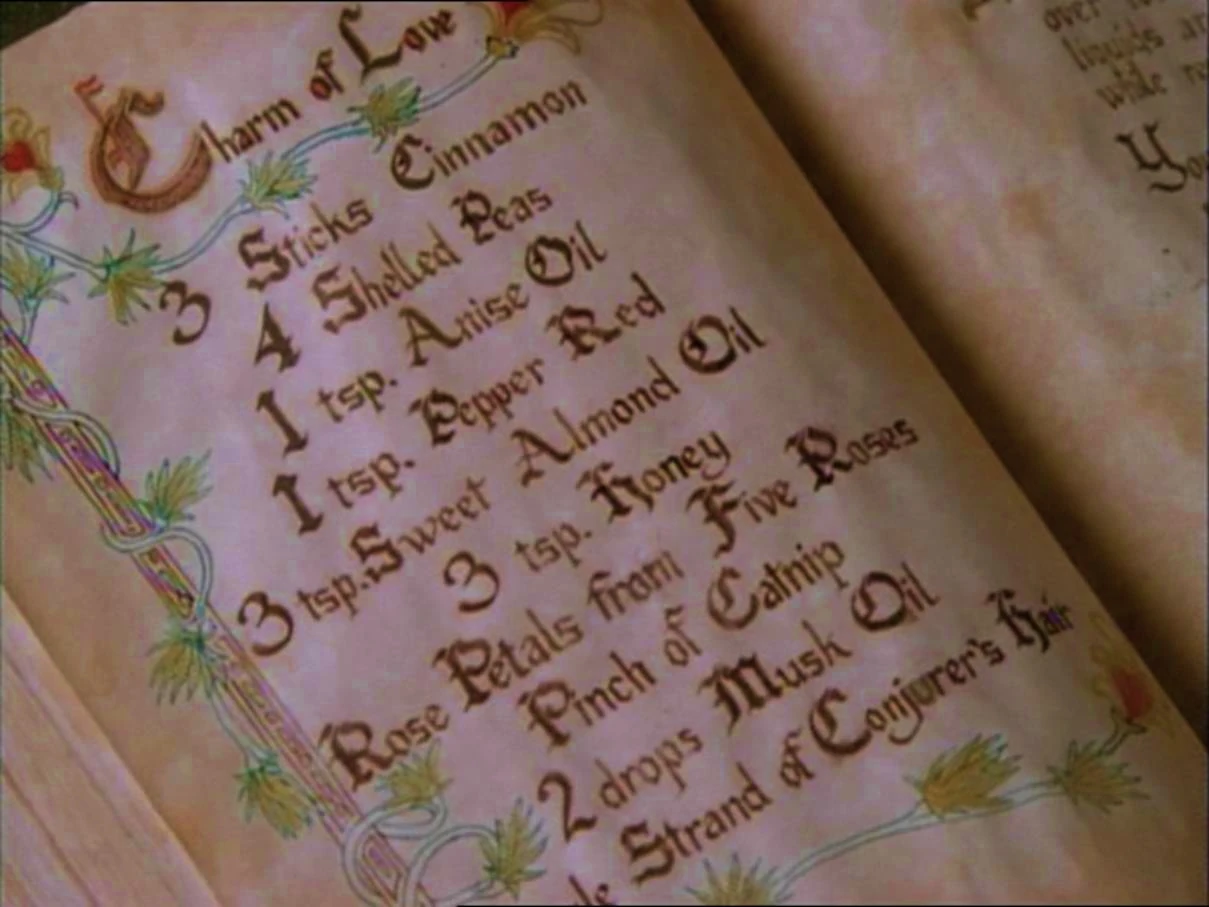 Charm of Love
3 Sticks Cinnamon
4 Shelled Peas
1 tsp. Anise Oil
1 tsp. Pepper Red
3 tsp. Sweet Almond Oil
3 tsp. Honey
Rose Petals from Five Roses
Pinch of Catnip
2 drops Musk Oil
Strand of Conjurer's Hair
over
liquids
while